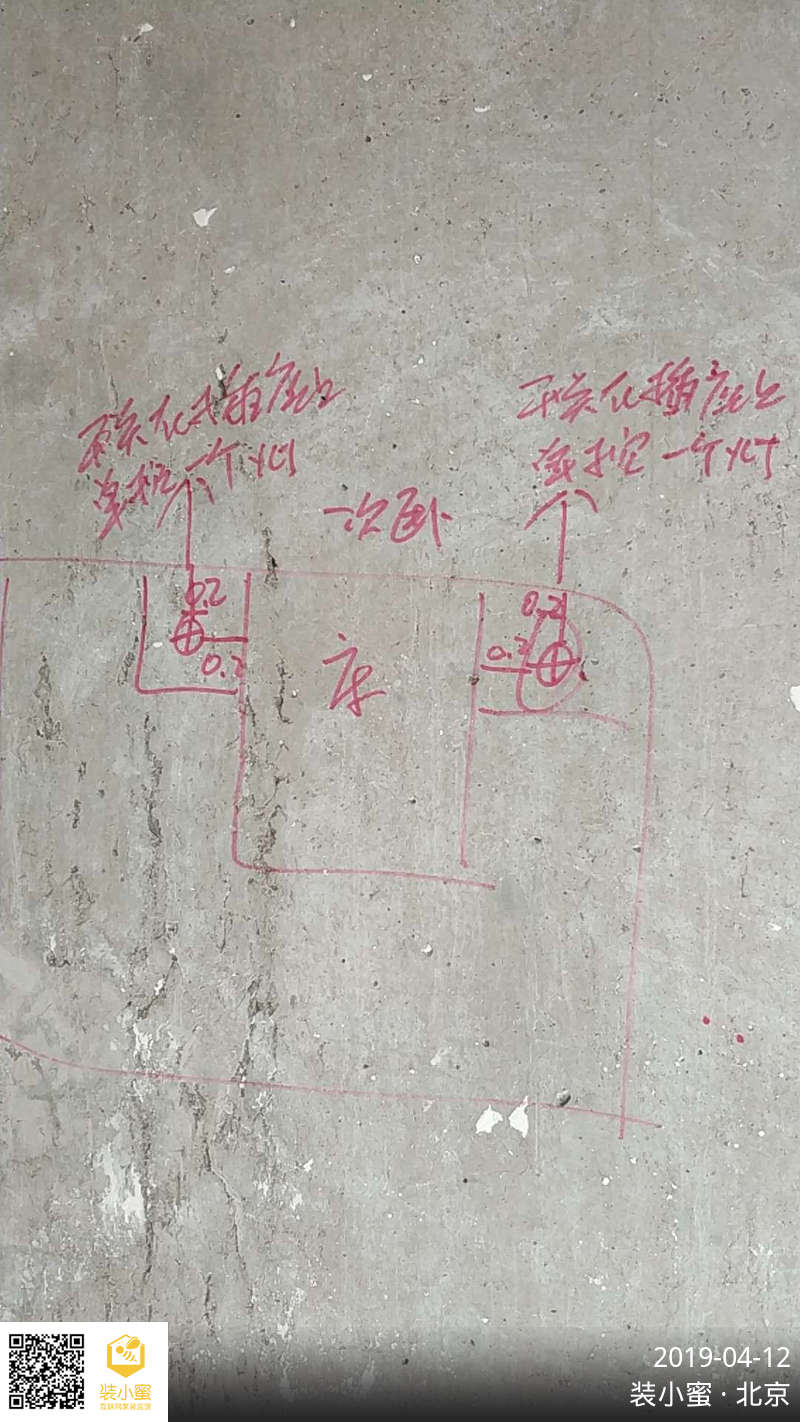 插座上
单控一个灯
插座上
单控一个灯
次卧
0.2
0.2
床
0.2
0.2
2019-04-12
装小蜜·北京
装小蜜